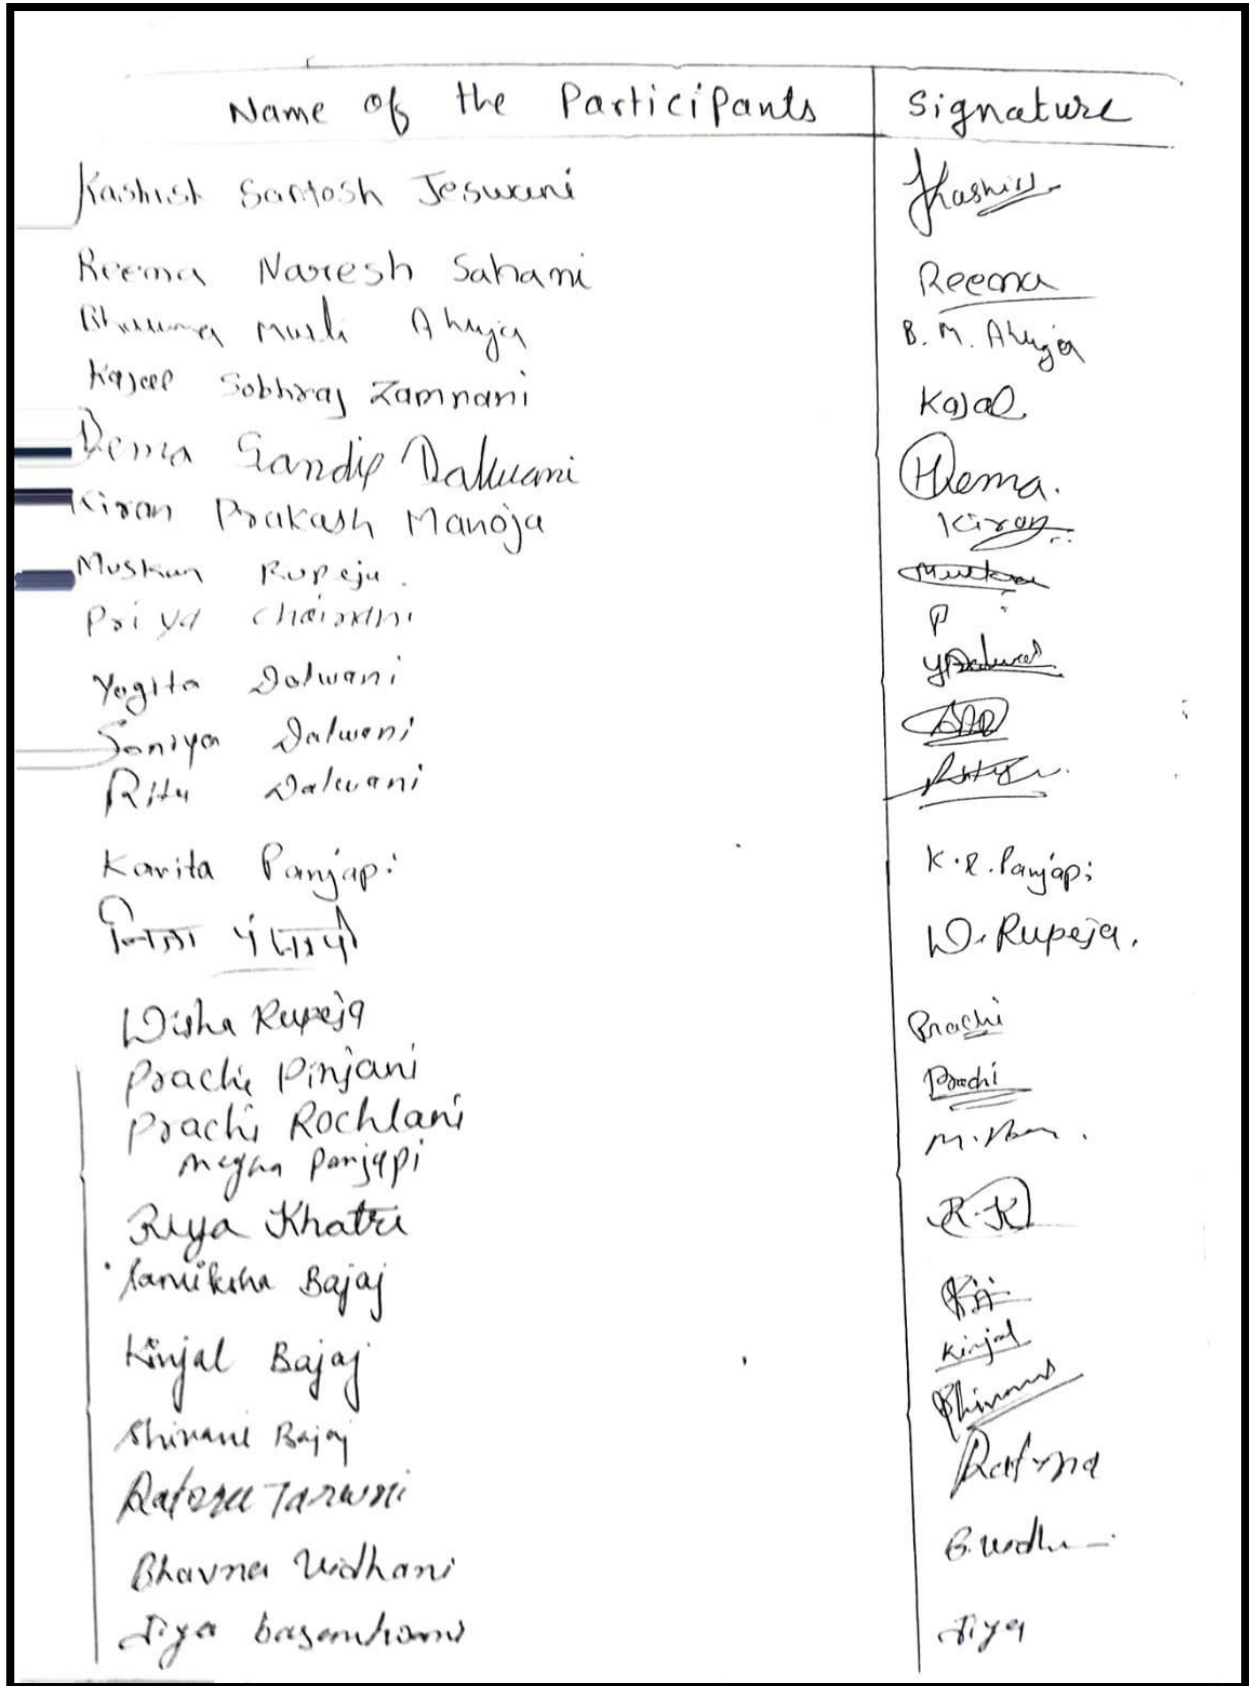 Name of the Participants Signature
Kashish Santosh Jeswani Kashish
Reema Naresh Sahani Reema
Bhawna Murli Ahuja B. M. Ahuja
Kajal Sobhraj Zamnani Kajal
Sandip Dalwani Hema.
Kiran Prakash Manoja Kiran
Muskan Rupeja. Muskan
Priya P
Yogita Dalwani Y Dalwani
Soniya Dalwani
Ritu Dalwani
Kavita Panjapi K. R. Panjapi
D. Rupeja.
Disha Rupeja Prachi
Prachi Pinjani Prachi
Prachi Rochlani M.
Megha Panjapi
Riya Khatri R.K
Samiksha Bajaj
Kinjal Bajaj Kinjal
Shivani Bajaj Shivani
Ratna
Bhavna Vidhani
Jiya Jiya